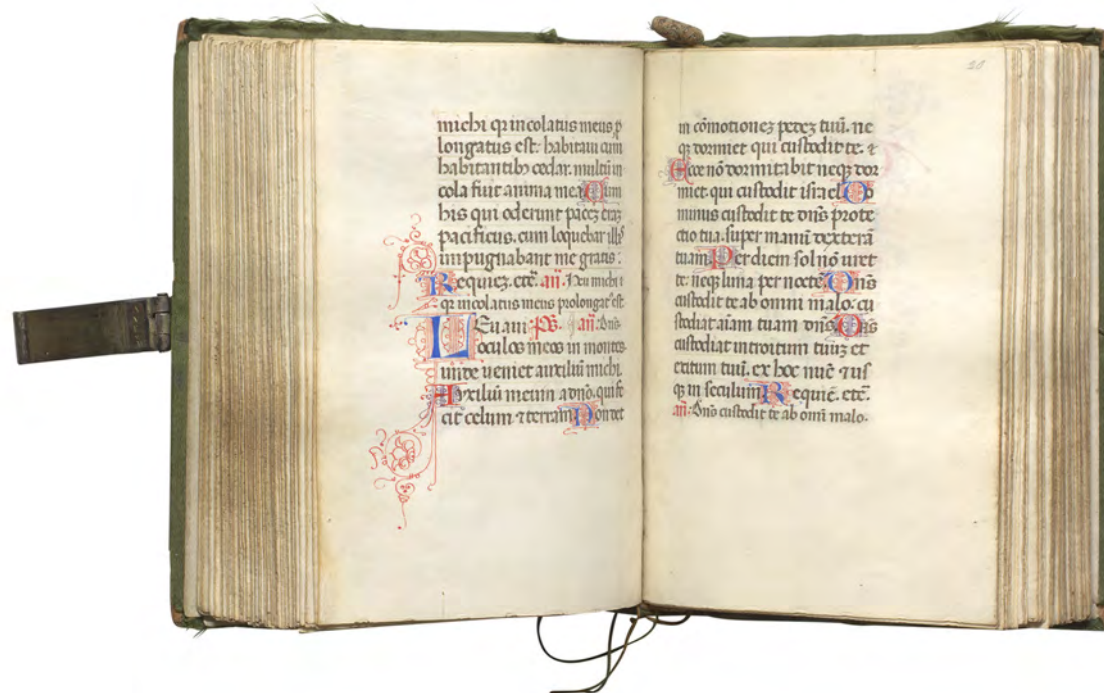 michi qꝛ incolatus meus ꝓ
longatus est: habitaui cum
habitantibꝫ cedar. multũ in
cola fuit anima mea Cum
his qui oderunt paceꝫ eraꝫ
pacificus. cum loquebar illis
impugnabant me gratis:
Requieꝫ. etc̃. añ. Heu michi
qꝛ incolatus meus prolongatꝰ est
Leuaui: Ps. añ. Dñs
oculos meos in montes
unde ueniet auxiliũ michi
Auxiliũ meum a dño. qui fe
cit celum ⁊ terram Non det
20
in cõmotioneꝫ pedeꝫ tuũ. ne
qꝫ dormiet qui custodit te. ⁊
Ecce nõ dormitabit neqꝫ dor
miet. qui custodit israel Do
minus custodit te dñs prote
ctio tua. super manũ dexterã
tuam. Per diem sol nõ uret
te: neqꝫ luna per noctẽ. Dñs
custodit te ab omni malo: cu
stodiat aĩam tuam dñs. Dñs
custodiat introitum tuuꝫ et
exitum tuũ. ex hoc nũc ⁊ us
qꝫ in seculum Requiẽ. etc̃.
añ. Dñs custodit te ab omni malo.